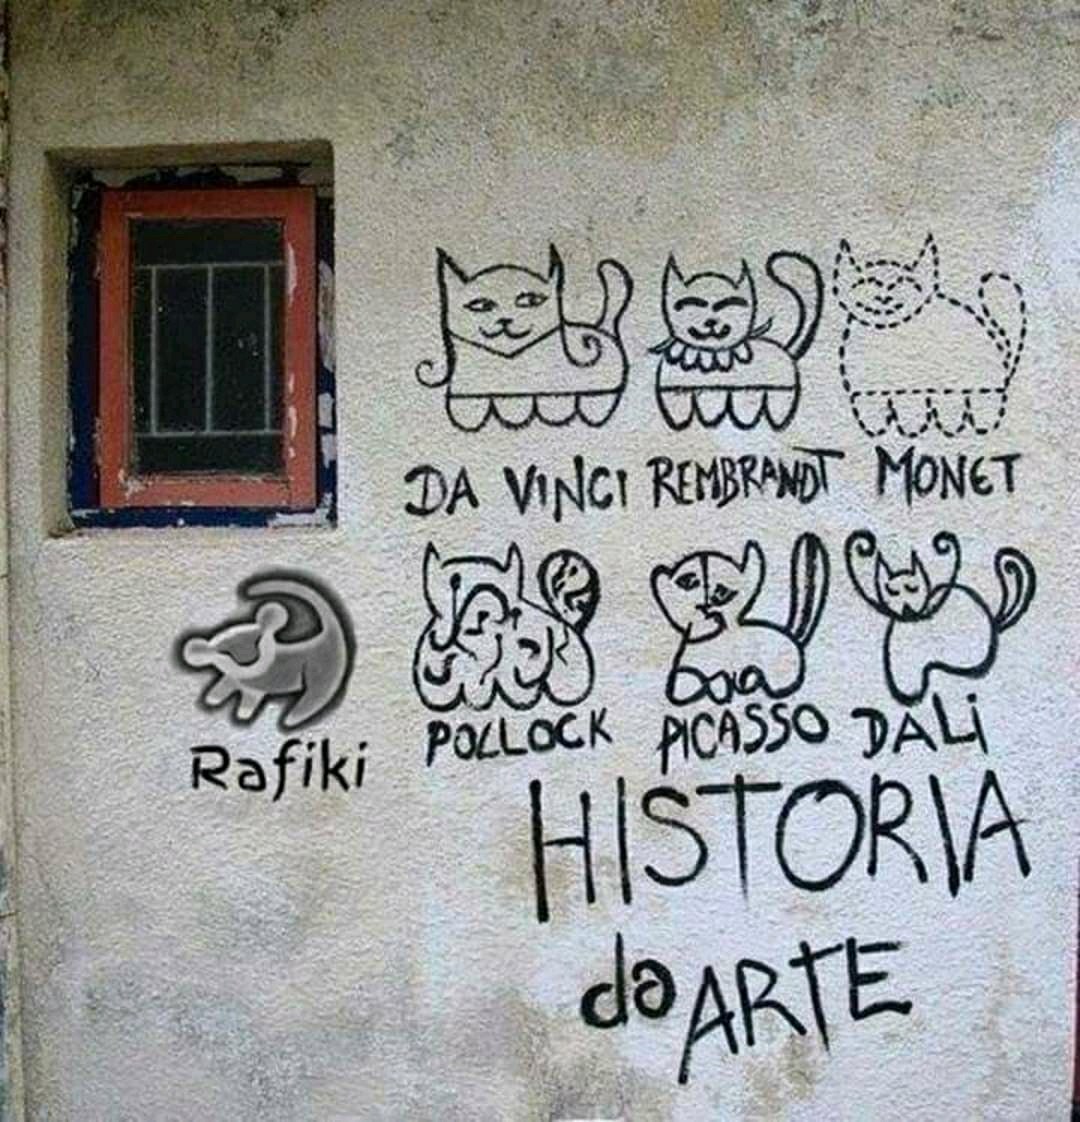 DA VINCI REMBRANDT MONET
POLLOCK PICASSO DALI
Rafiki
HISTORIA
da ARTE